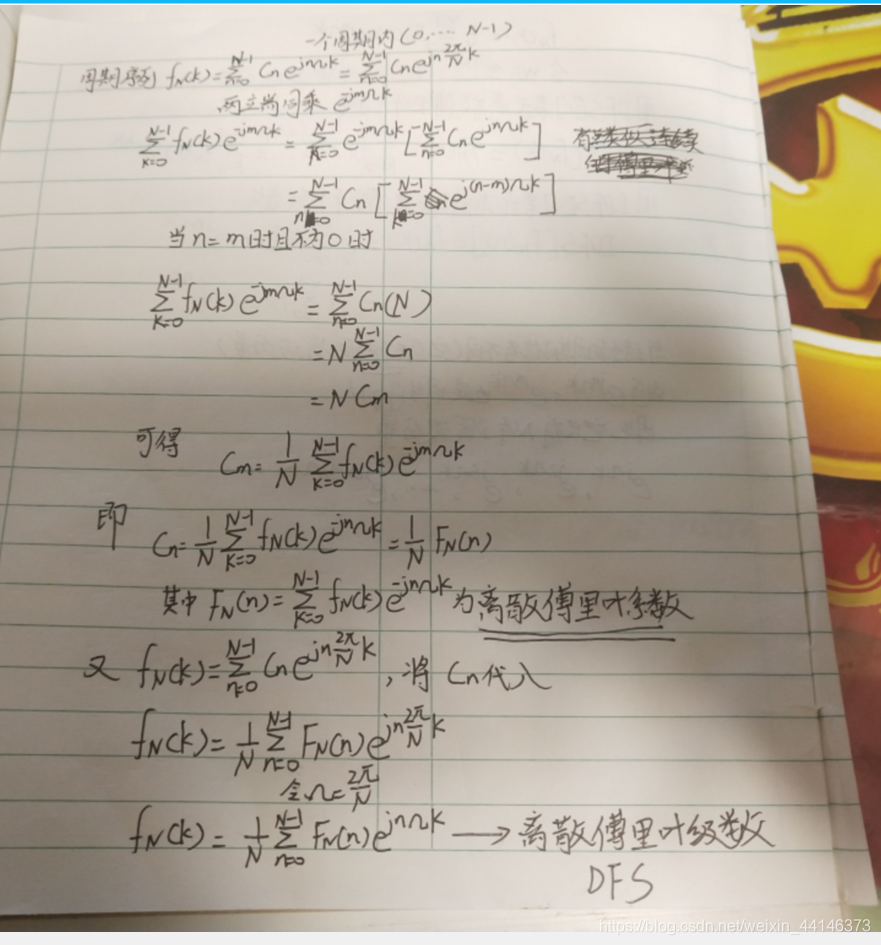 一个周期内(0,…. N-1)
周期序列 f_N(k)=∑_{n=0}^{N-1} Cn e^{jnΩk} = ∑_{n=0}^{N-1} Cn e^{jn\frac{2π}{N}k}
两边同乘 e^{-jmΩk}
∑_{k=0}^{N-1} f_N(k) e^{-jmΩk} = ∑_{k=0}^{N-1} e^{-jmΩk} [∑_{n=0}^{N-1} Cn e^{jnΩk}]
= ∑_{n=0}^{N-1} Cn [∑_{k=0}^{N-1} e^{j(n-m)Ωk}]
当n=m时且不为0时
∑_{k=0}^{N-1} f_N(k) e^{-jmΩk} = ∑_{n=0}^{N-1} Cn(N)
= N ∑_{n=0}^{N-1} Cn
= N Cm
可得 Cm = \frac{1}{N} ∑_{k=0}^{N-1} f_N(k) e^{-jmΩk}
即 Cn = \frac{1}{N} ∑_{k=0}^{N-1} f_N(k) e^{-jnΩk} = \frac{1}{N} F_N(n)
其中 F_N(n) = ∑_{k=0}^{N-1} f_N(k) e^{-jnΩk} 为离散傅里叶系数
又 f_N(k) = ∑_{n=0}^{N-1} Cn e^{jn\frac{2π}{N}k}, 将 Cn代入
f_N(k) = \frac{1}{N} ∑_{n=0}^{N-1} F_N(n) e^{jn\frac{2π}{N}k}
令Ω=\frac{2π}{N}
f_N(k) = \frac{1}{N} ∑_{n=0}^{N-1} F_N(n) e^{jnΩk} → 离散傅里叶级数
DFS
https://blog.csdn.net/weixin_44146373